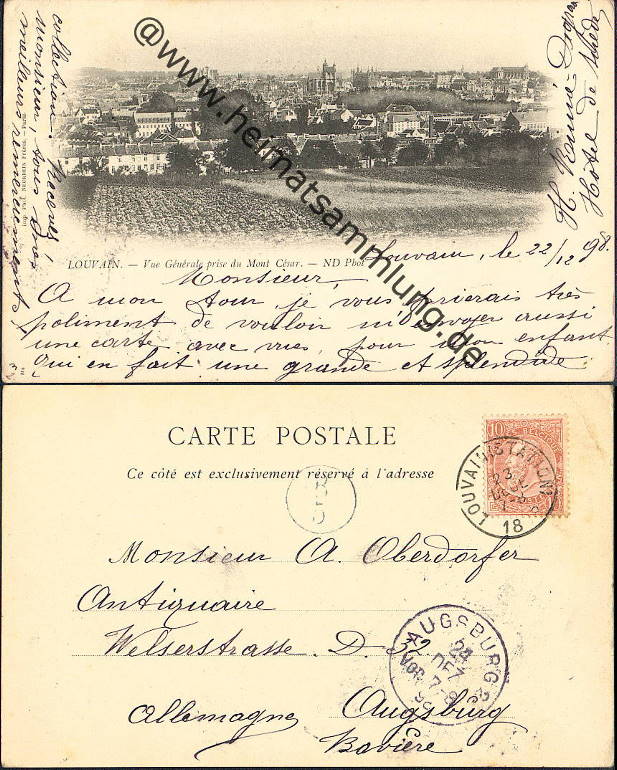 @www.heimatsammlung.de
LOUVAIN. — Vue Générale prise du Mont César. — ND Phot
Louvain, le 22/12 98.
Monsieur,
A mon tour, je vous prierais très
poliment de vouloir m'envoyer aussi
une carte avec vues, pour mon enfant
qui en fait une grande et splendide
collection. Recevez,
Monsieur, tous
meilleurs remerciements
H.
Hôtel de
CARTE POSTALE
Ce côté est exclusivement réservé à l'adresse
10
BELGIQUE
LOUVAIN (STATION)
18
Monsieur A. Oberdorfer
Antiquaire
Welserstrasse D. 32
Allemagne Augsburg
Bavière
AUGSBURG
24
DEZ
VOR. 7-8
98